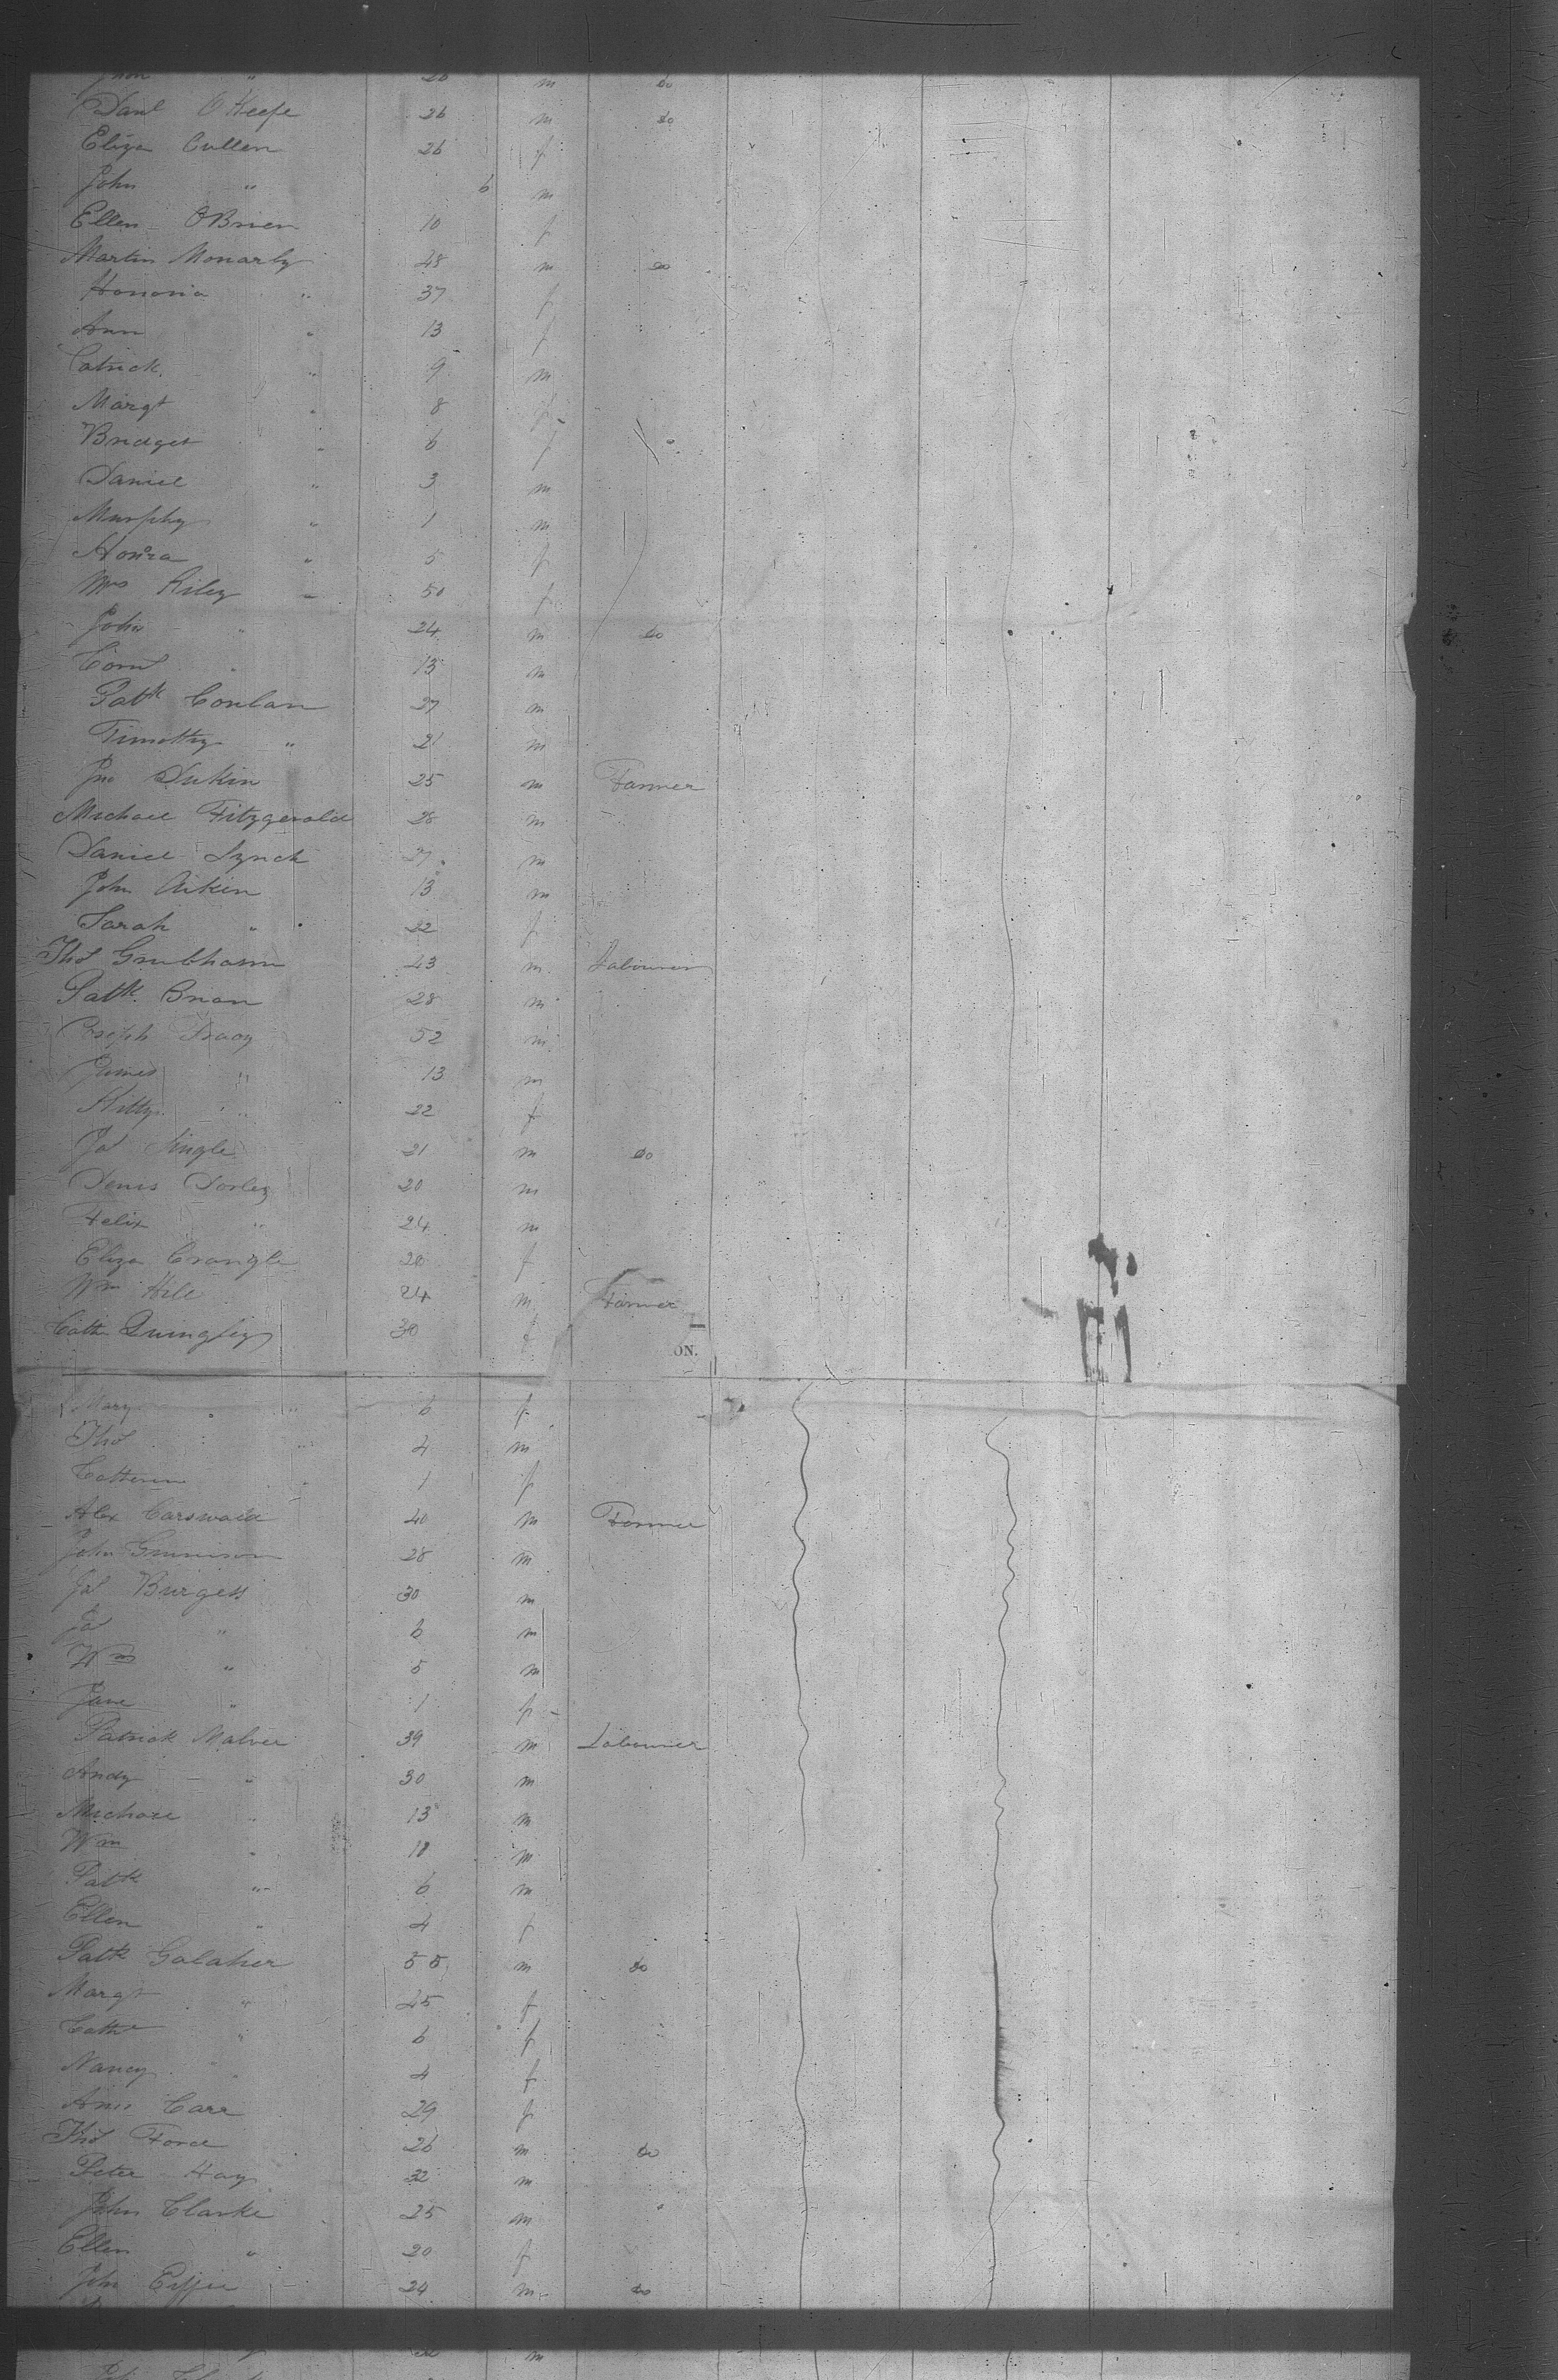 John " 26 m do
Danl O'Keefe 26 m do
Eliza Cullen 26 f
John " 6 m
Ellen O'Brien 10 f
Martin Monarly 48 m do
Honoria " 37 f
Ann " 13 f
Patrick " 9 m
Margt " 8 f
Bridget " 6 f
Daniel " 3 m
Murphy " 1 m
Honra " 5 f
Mrs Riley 50 f
John " 24 m do
Corns " 13 m
Patk Conlan 27 m
Timothy " 21 m
Jno 25 m Farmer
Michael Fitzgerald 28 m
Daniel Lynch 27 m
John Aikin 13 m
Sarah " 22 f
Thos Grubham 43 m Labourer
Patk Brian 28 m
Joseph Tracy 52 m
James " 13 m
Kitty " 22 f
Jas Single 21 m do
Denis Dorley 20 m
Felix " 24 m
Eliza Crangle 20 f
Wm Hill 24 m Farmer
Cath Quingley 30 f
ON.
Mary " 6 f
Thos " 4 m
Catherin " 1 f
Alex Carswald 40 m Farmer
John 28 m
Jas Burgess 30 m
Jas " 6 m
Wm " 5 m
Jane " 1 f
Patrick Malvee 39 m Labourer
Andy " 30 m
Michael " 13 m
Wm " 10 m
Patk " 6 m
Ellen " 4 f
Patk Galaher 55 m do
Margt " 45 f
Cathe " 6 f
Nancy " 4 f
Ann Carr 29 f
Thos Force 26 m do
Peter Hay 32 m
John Clarke 25 m
Ellen " 20 f
John 24 m do